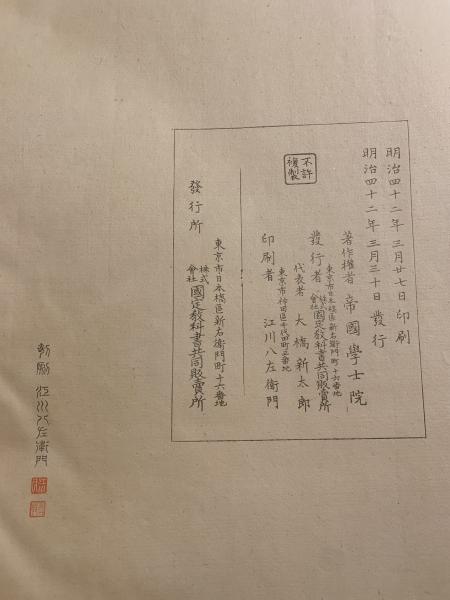 明治四十二年三月廿七日印刷
明治四十二年三月三十日發行
不許
複製
著作權者 帝國學士院
東京市日本橋區新右衞門町十六番地
發行者 株式會社國定敎科書共同販賣所
代表者 大橋新太郎
東京市神田區千代田町五番地
印刷者 江川八左衞門
東京市日本橋區新右衞門町十六番地
發行所 株式會社國定敎科書共同販賣所
江川八左衞門